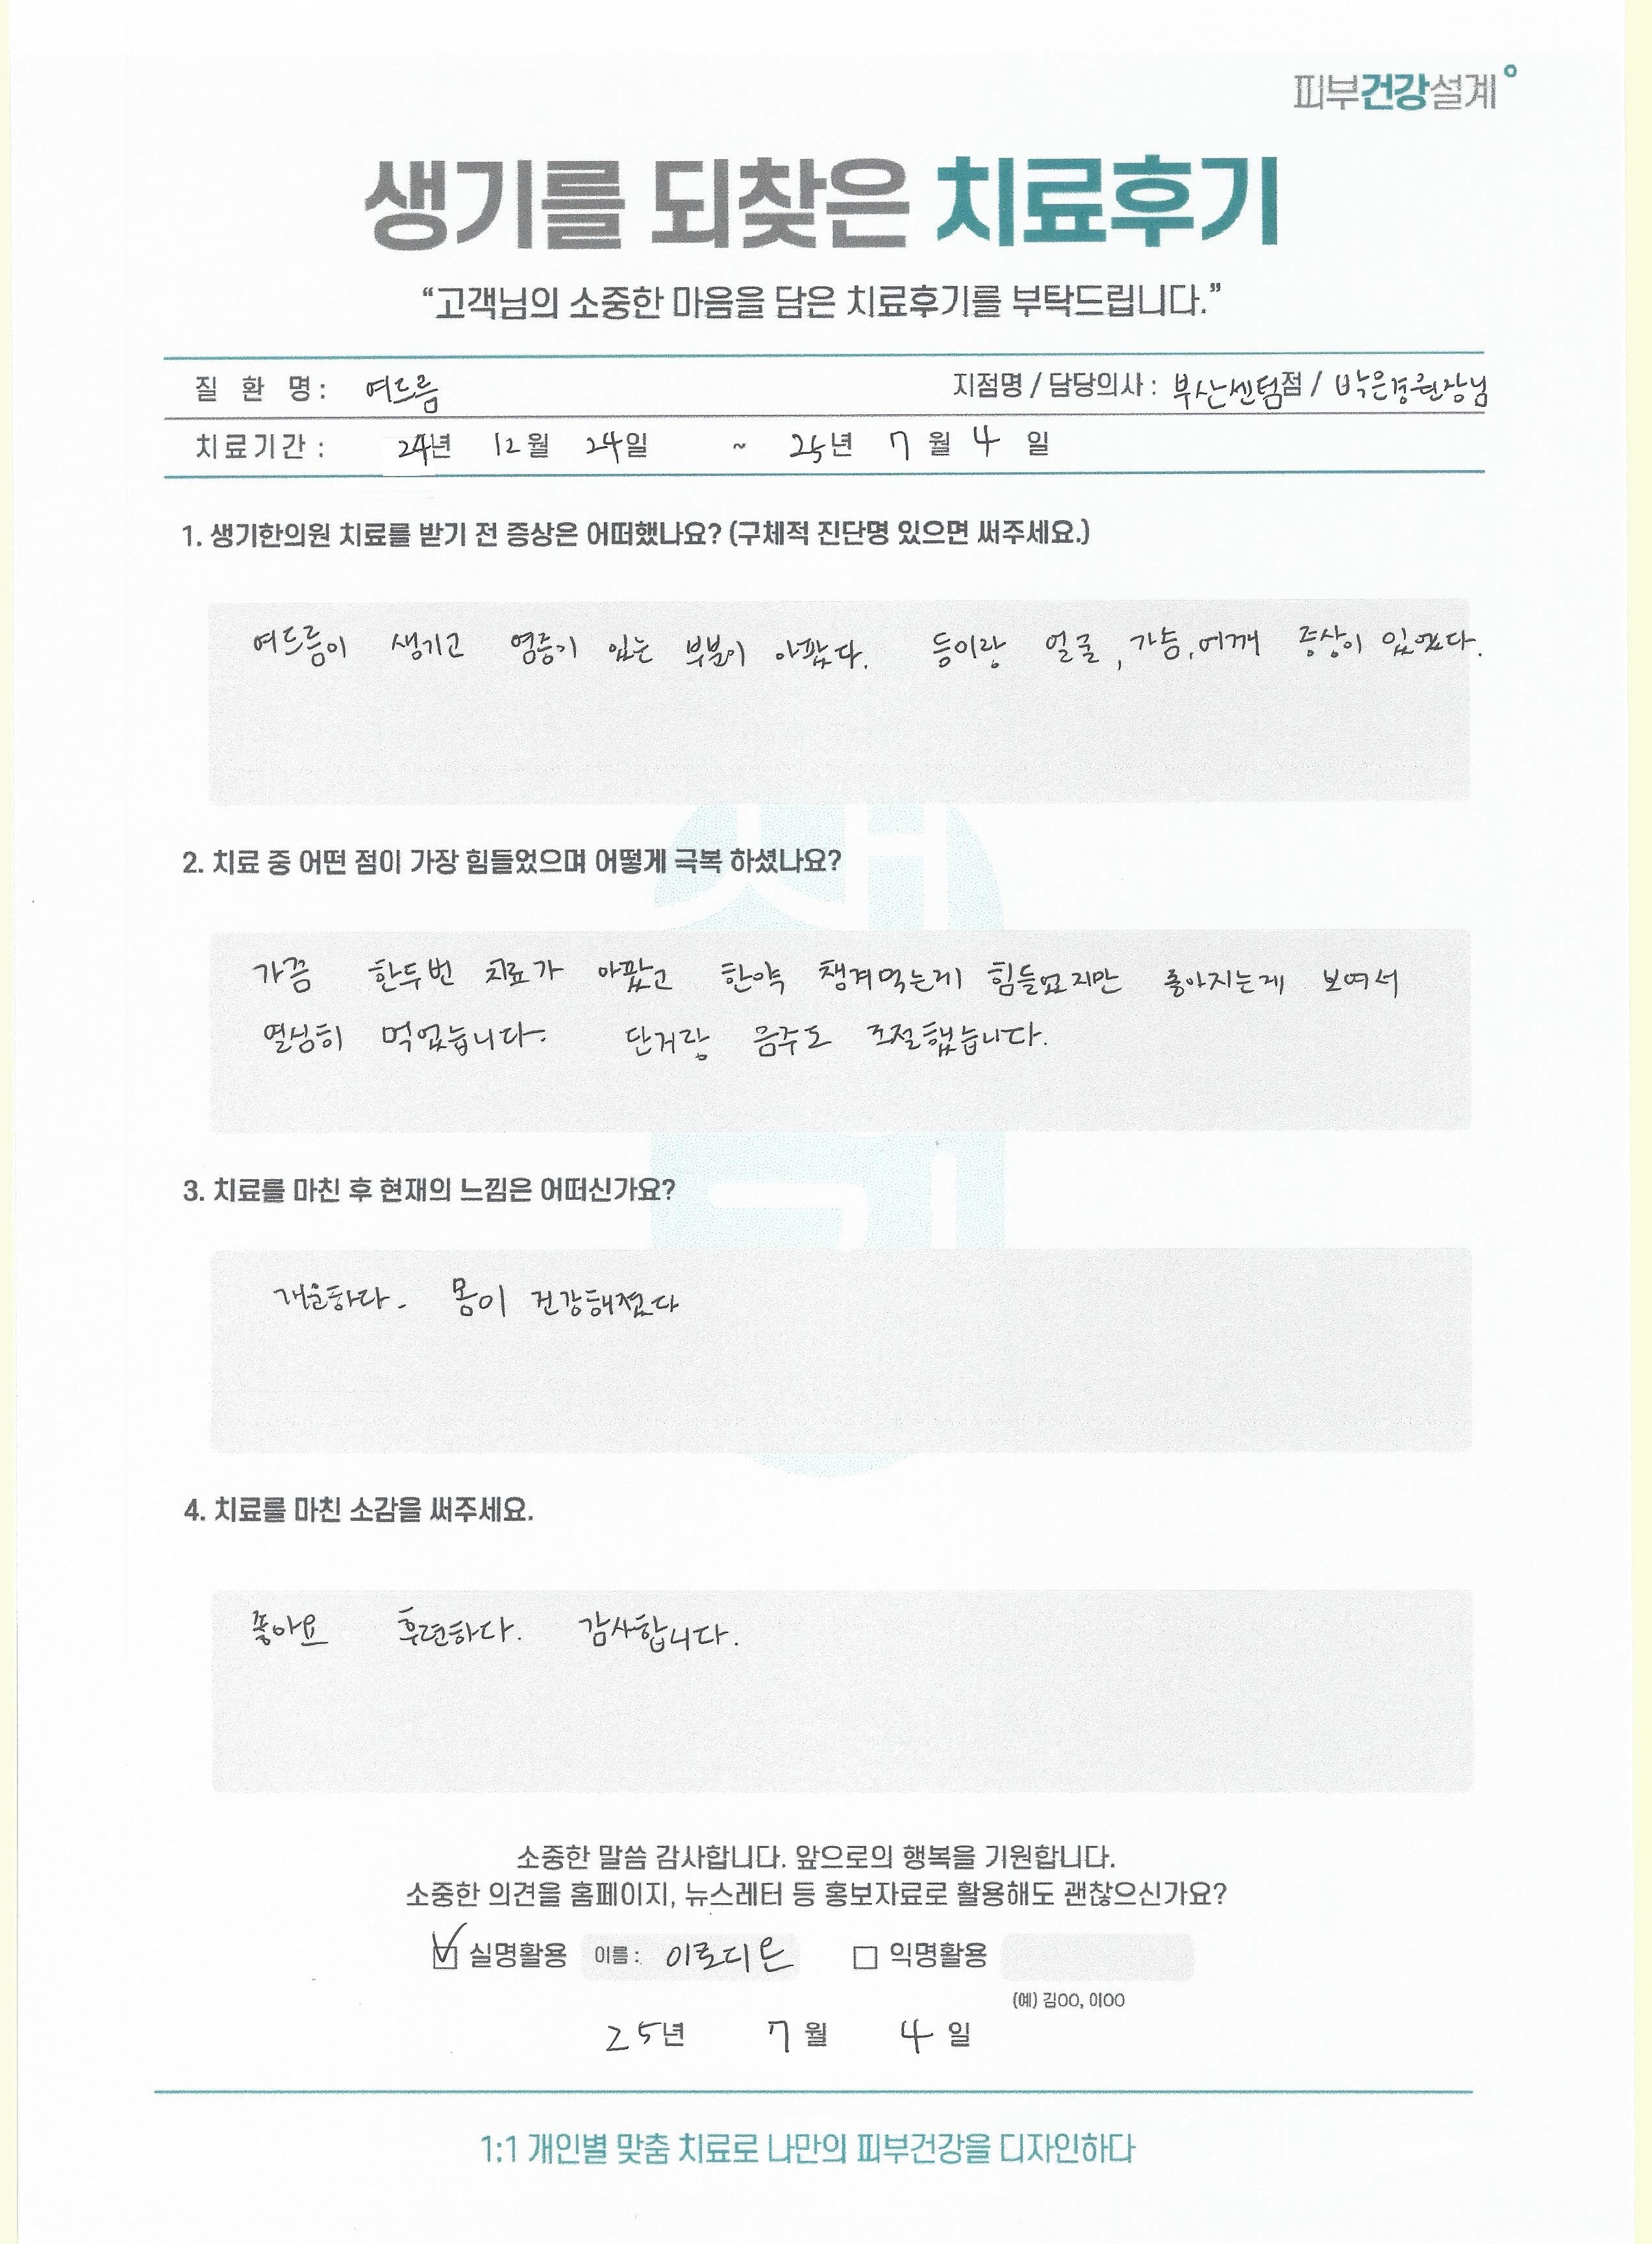 피부건강설계
생기를 되찾은 치료후기
“고객님의 소중한 마음을 담은 치료후기를 부탁드립니다.”
질 환 명 : 여드름 지점명 / 담당의사 : 부산센텀점 / 박은경원장님
치료기간 : 24년 12월 24일 ~ 25년 7월 4일
1. 생기한의원 치료를 받기 전 증상은 어떠했나요? (구체적 진단명 있으면 써주세요.)
여드름이 생기고 염증이 있는 부분이 아팠다. 등이랑 얼굴, 가슴, 어깨 증상이 있었다.
생기
2. 치료 중 어떤 점이 가장 힘들었으며 어떻게 극복 하셨나요?
가끔 한두번 치료가 아팠고 한약 챙겨먹는게 힘들었지만 좋아지는게 보여서
열심히 먹었습니다. 단거랑 음주도 조절했습니다.
3. 치료를 마친 후 현재의 느낌은 어떠신가요?
개운하다. 몸이 건강해졌다
4. 치료를 마친 소감을 써주세요.
좋아요 후련하다. 감사합니다.
소중한 말씀 감사합니다. 앞으로의 행복을 기원합니다.
소중한 의견을 홈페이지, 뉴스레터 등 홍보자료로 활용해도 괜찮으신가요?
실명활용 이름 : 이로디은 익명활용
(예) 김OO, 이OO
25년 7월 4일
1:1 개인별 맞춤 치료로 나만의 피부건강을 디자인하다